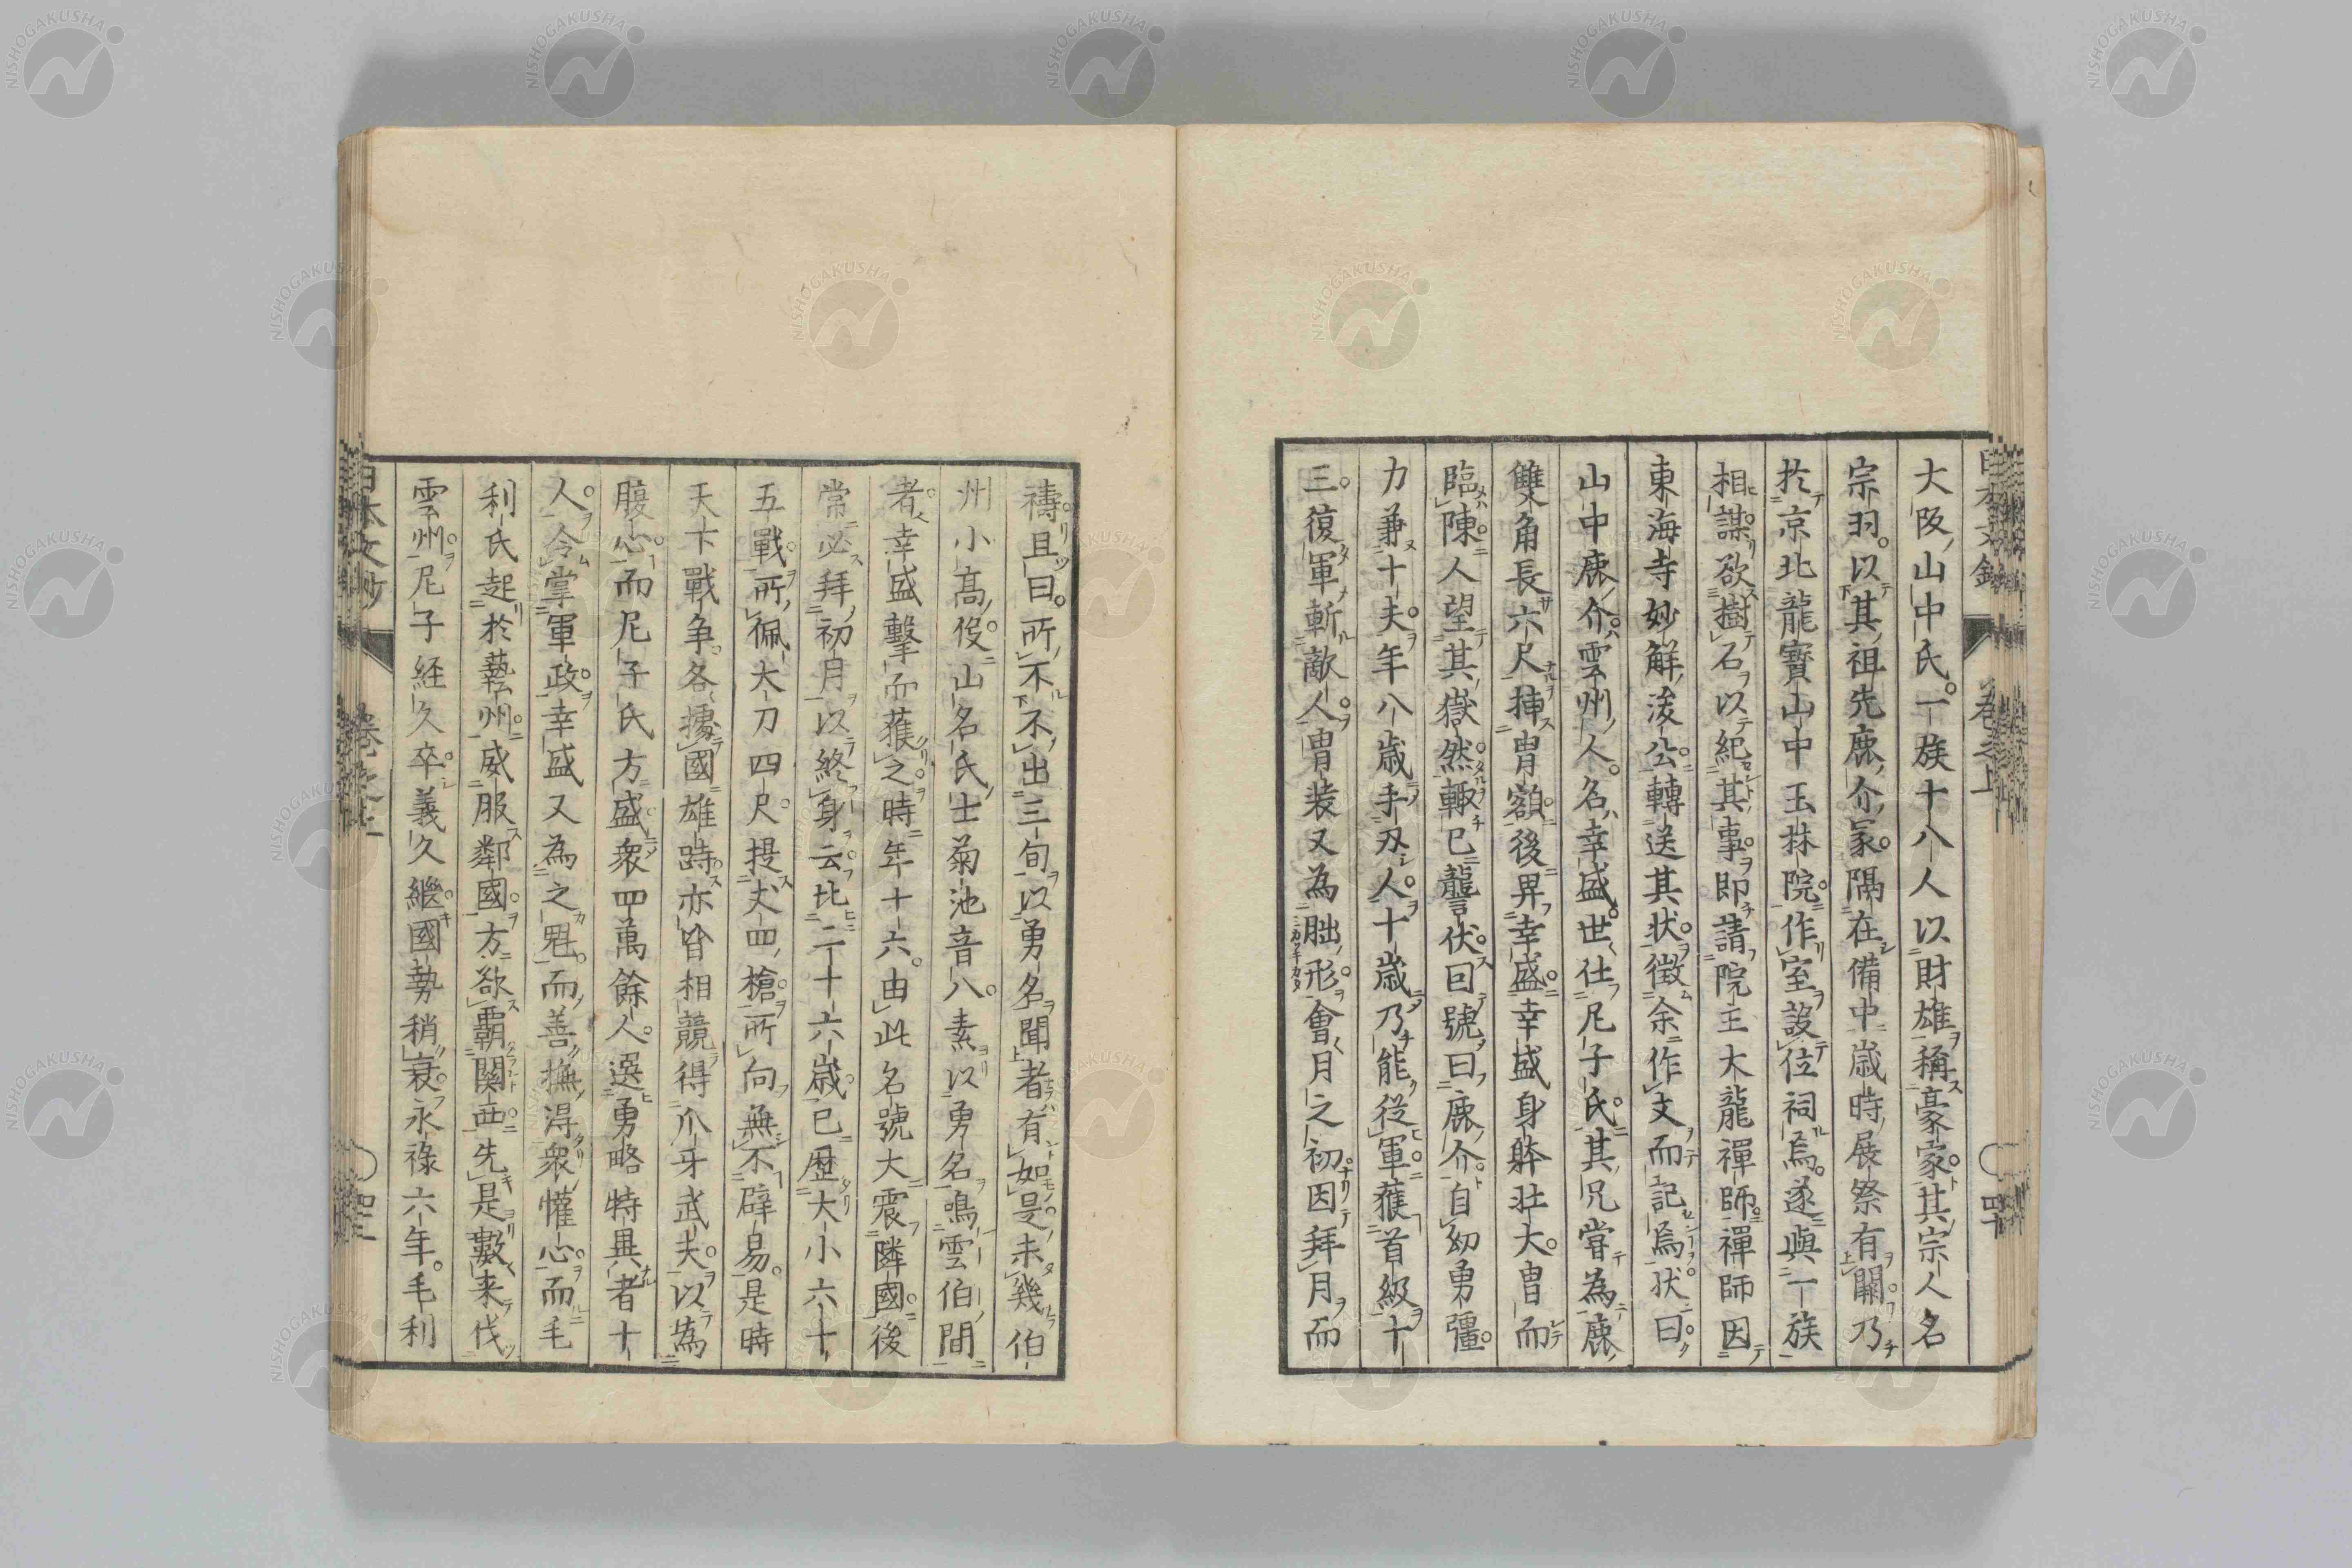 大阪山中氏一族十八人以財雄稱豪家其宗人名
宗羽以其祖先鹿介冢隅在備中歳時展祭有闕乃
於京北龍寶山中玉林院作室設位祠焉遂與一族
相謀欲樹石以紀其事即請院主大龍禪師禪師因
東海寺妙解浚公轉送其状徴余作文而記焉状曰
山中鹿介雲州人名幸盛世仕尼子氏其兄嘗為鹿
雙角長六尺挿冑額後昇幸盛幸盛身躰壮大冑而
臨陳人望其嶽然輙已讋伏回號曰鹿介自幼勇彊
力兼十夫年八歳手刃人十歳乃能從軍獲首級十
三復軍斬敵人冑装又為朏形會月之初因拜月而
禱且曰所不不出三旬以勇名聞者有如是未幾伯
州小高俊山名氏士菊池音八素以勇名鳴雲伯間
者幸盛擊而獲之時年十六由此名號大震隣國後
常必拜初月以終身云比二十六歳已歴大小六十
五戰所佩大刀四尺提丈四槍所向無不辟易是時
天下戰争各據國雄跱亦皆相競得爪牙武夫以為
腹心而尼子氏方盛衆四萬餘人選勇略特異者十
人令掌軍政幸盛又為之魁而善撫得衆懽心而毛
利氏起於藝州威服鄰國方欲覇関西先是數来伐
雲州尼子経久卒義久繼國勢稍衰永祿六年毛利